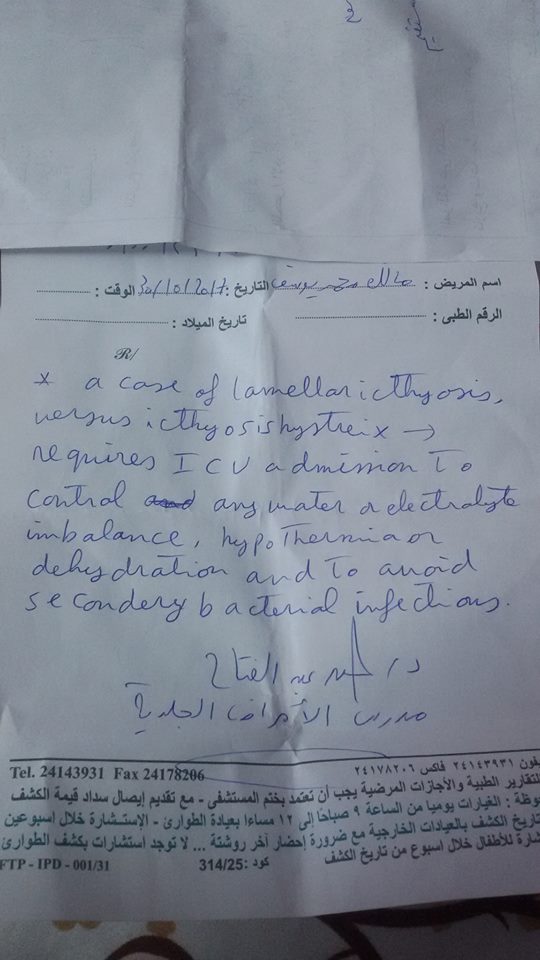 اسم المريض : مالك محمد يوسف التاريخ : 30/10/2017 الوقت :
الرقم الطبى : تاريخ الميلاد :
R/
* a case of lamellar icthyosis,
versus icthyosis hystreix →
requires ICU admission To
control any water or electrolyte
imbalance, hypothermia or
dehydration and To avoid
secondery bacterial infections.
د/ عبد الفتاح
مدرس الأمراض الجلدية
Tel. 24143931 Fax 24178206 فون ٢٤١٤٣٩٣١ فاكس ٢٤١٧٨٢٠٦
التقارير الطبية والأجازات المرضية يجب أن تعتمد بختم المستشفى - مع تقديم إيصال سداد قيمة الكشف
وظة : الغيارات يوميا من الساعة ٩ صباحا إلى ١٢ مساءا بعيادة الطوارئ - الإستشارة خلال اسبوعين
تاريخ الكشف بالعيادات الخارجية مع ضرورة إحضار آخر روشتة ... لا توجد استشارات بكشف الطوارئ
شارة للأطفال خلال اسبوع من تاريخ الكشف كود :314/25 FTP - IPD - 001/31